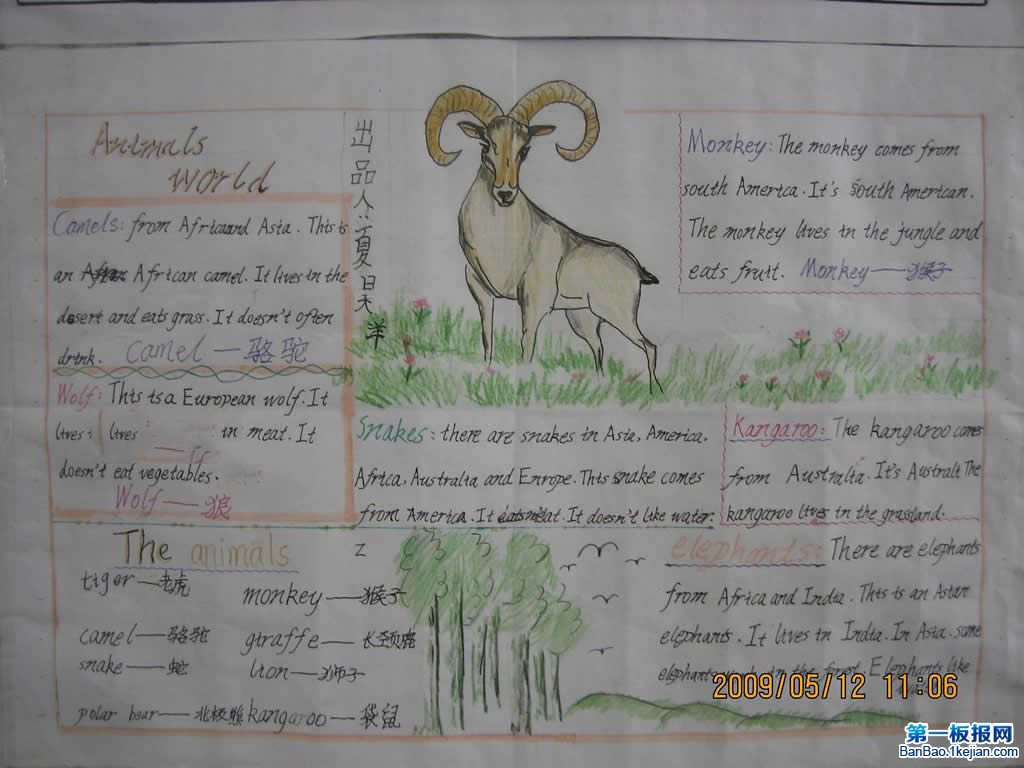 Animals
World
Camels: from Africaand Asia. This is
an African camel. It lives in the
desert and eats grass. It doesn't often
drink. Camel—骆驼
Wolf: This is a European wolf. It
lives in meat. It
doesn't eat vegetables.
Wolf——狼
出品人:夏日天洋
Monkey: The monkey comes from
south America. It's South American.
The monkey lives in the jungle and
eats fruit. Monkey——猴子
Snakes: there are snakes in Asia, America,
Africa, Australia and Enrope. This snake comes
from America. It eats meat. It doesn't like water.
Kangaroo: The kangaroo comes
from Australia. It's Australi The
kangaroo lives in the grassland.
The animals
tiger—老虎
monkey——猴子
camel——骆驼
giraffe——长颈鹿
snake——蛇
lion——狮子
polar bear——北极熊
kangaroo—袋鼠
z
elephants: There are elephants
from Africa and India. This is an Asian
elephants. It lives in India. In Asia. some
elephants in the forest. Elephants like
2009/05/12 11:06
第一板报网
BanBao.1kejian.com